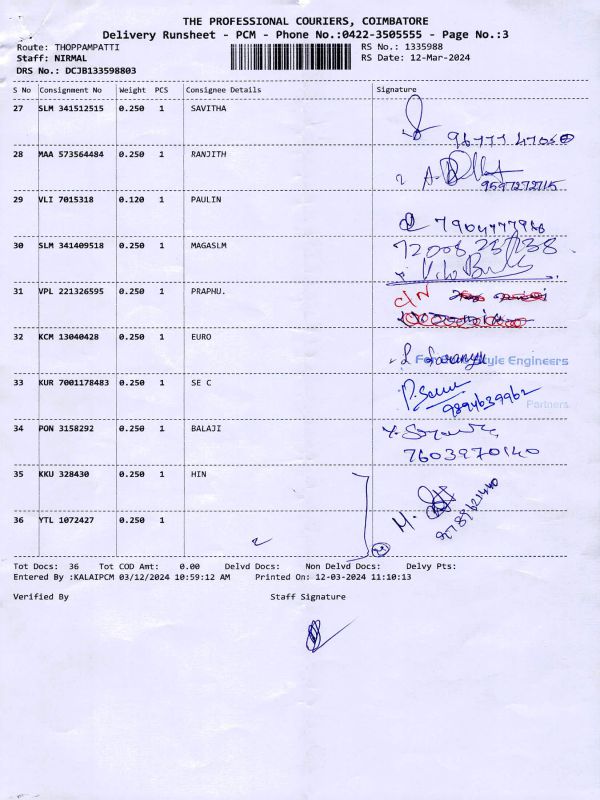 THE PROFESSIONAL COURIERS, COIMBATORE
Delivery Runsheet - PCM - Phone No.:0422-3505555 - Page No.:3
Route: THOPPAMPATTI RS No.: 1335988
Staff: NIRMAL RS Date: 12-Mar-2024
DRS No.: DCJB133598803
S No Consignment No Weight PCS Consignee Details Signature
27 SLM 341512515 0.250 1 SAVITHA
28 MAA 573564484 0.250 1 RANJITH
9597272715
29 VLI 7015318 0.120 1 PAULIN
30 SLM 341409518 0.250 1 MAGASLM
31 VPL 221326595 0.250 1 PRAPHU.
32 KCM 13040428 0.250 1 EURO
Engineers
33 KUR 7001178483 0.250 1 SE C
9894639962
Partners
34 PON 3158292 0.250 1 BALAJI
7603970140
35 KKU 328430 0.250 1 HIN
36 YTL 1072427 0.250 1
Tot Docs: 36 Tot COD Amt: 0.00 Delvd Docs: Non Delvd Docs: Delvy Pts:
Entered By :KALAIPCM 03/12/2024 10:59:12 AM Printed On: 12-03-2024 11:10:13
Verified By Staff Signature